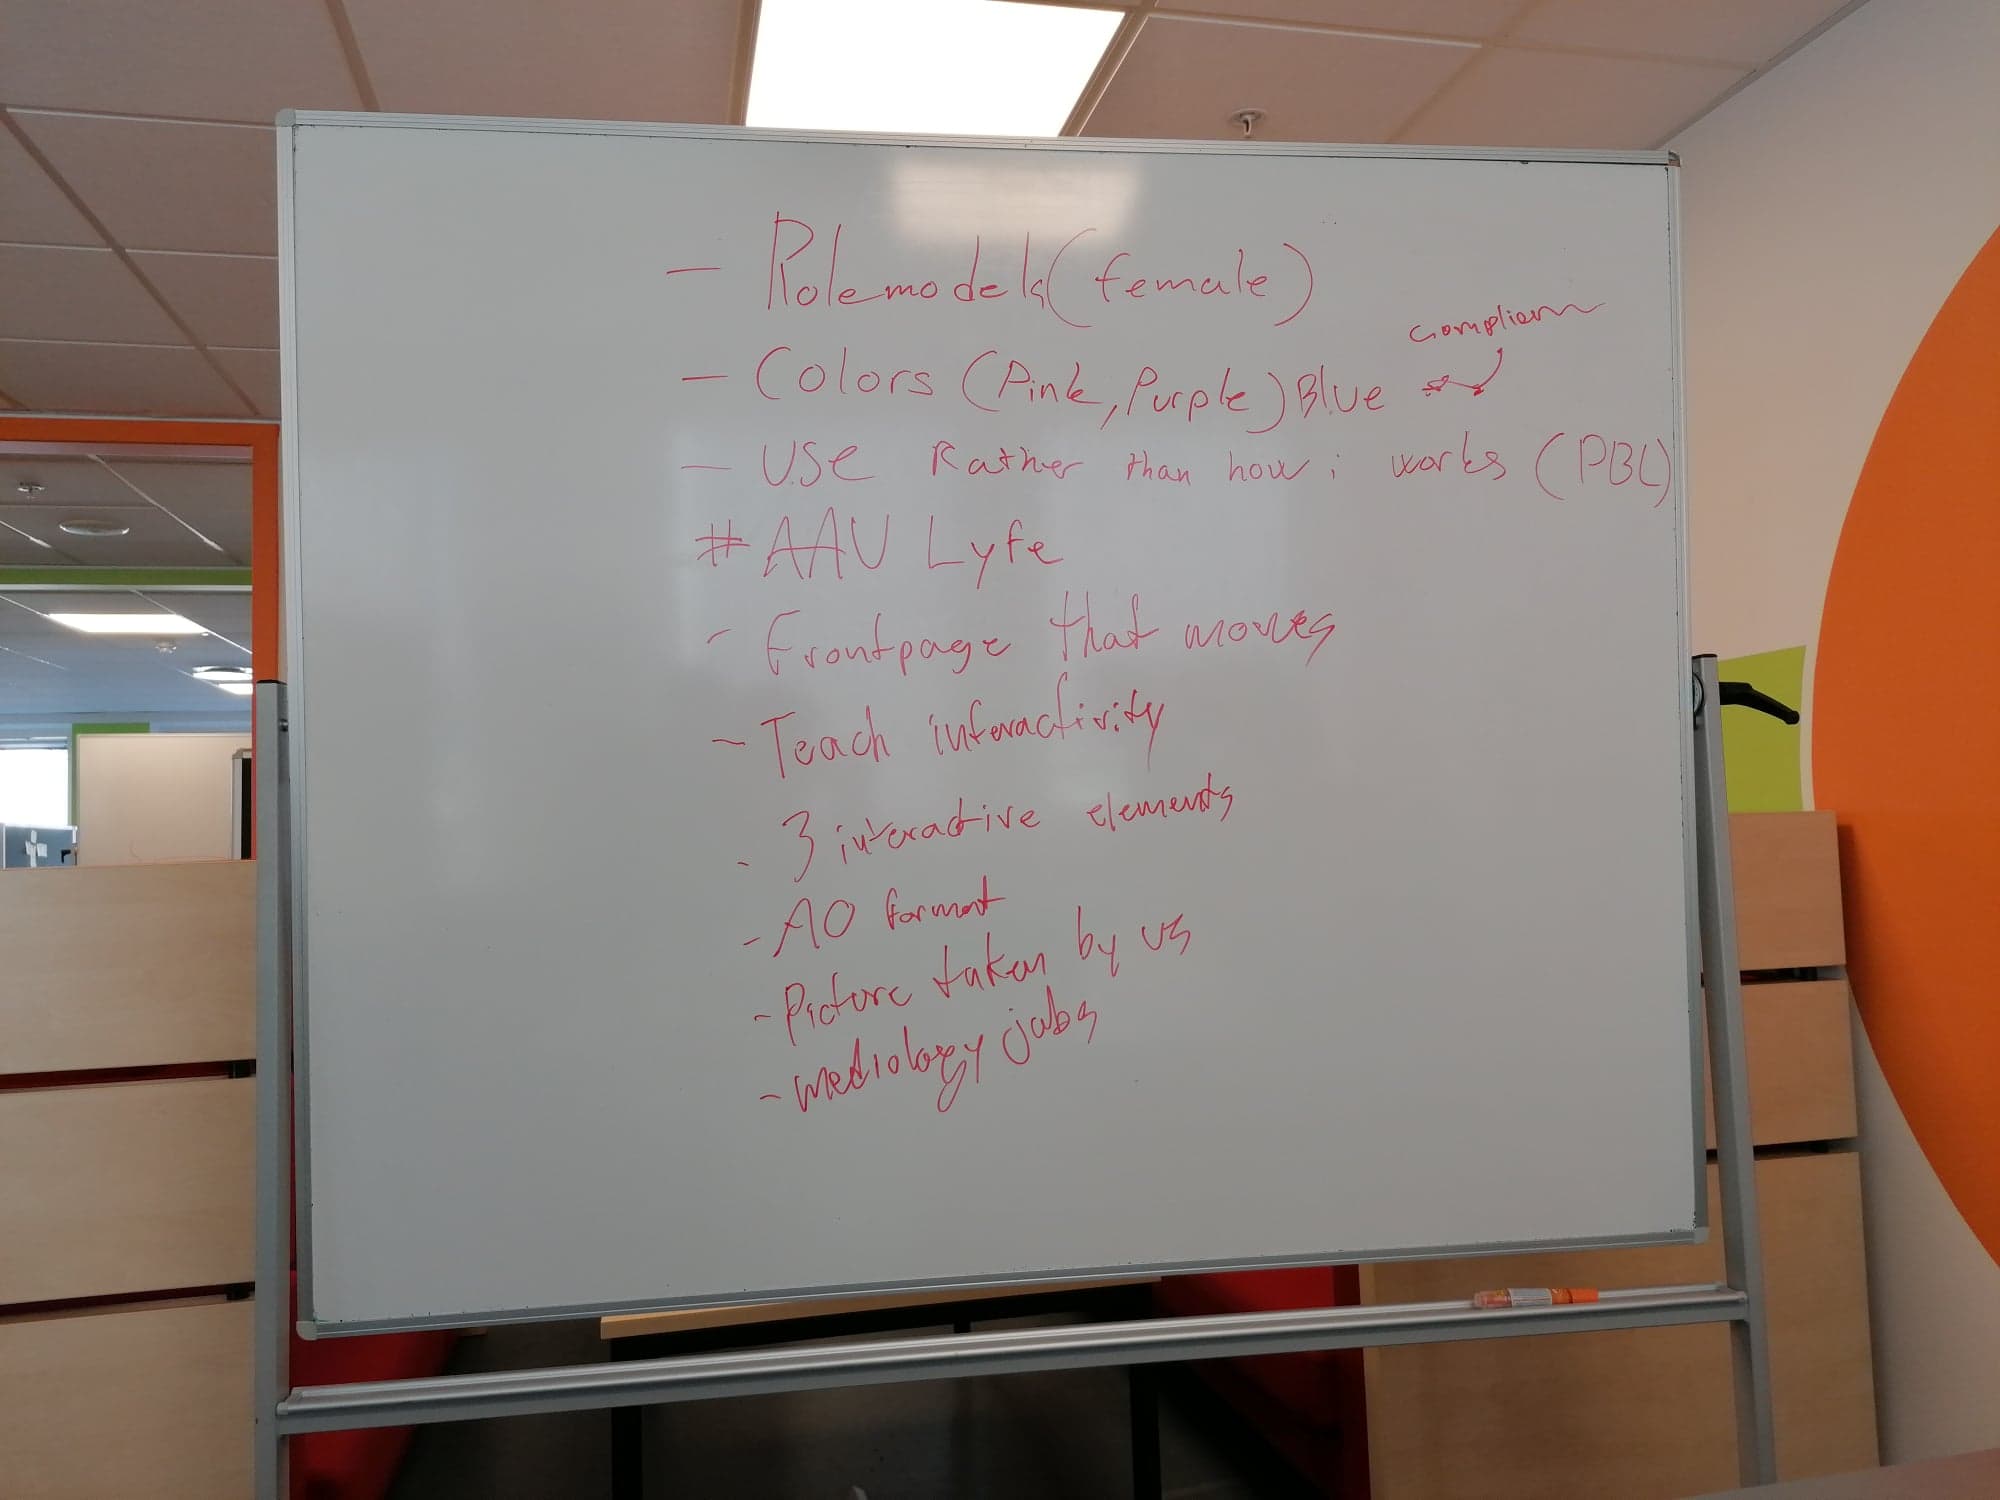 - Rolemodels (female)
- Colors (Pink, Purple) Blue
- USE Rather than how i works (PBL)
# AAU Lyfe
- Frontpage that moves
- Teach interactivity
- 3 interactive elements
- A0 format
- Picture taken by us
- mediology jobs